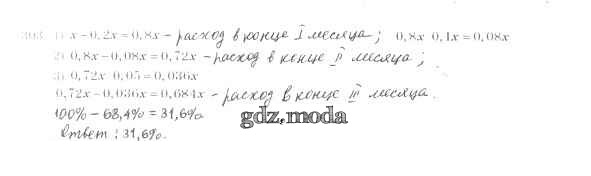 303. 1) x – 0,2x = 0,8x – расход в конце I месяца; 0,8x 0,1x = 0,08x
2) 0,8x – 0,08x = 0,72x – расход в конце II месяца;
3) 0,72x 0,05 = 0,036x
0,72x – 0,036x = 0,684x – расход в конце III месяца.
100% – 68,4% = 31,6%
Ответ: 31,6%.
gdz.moda